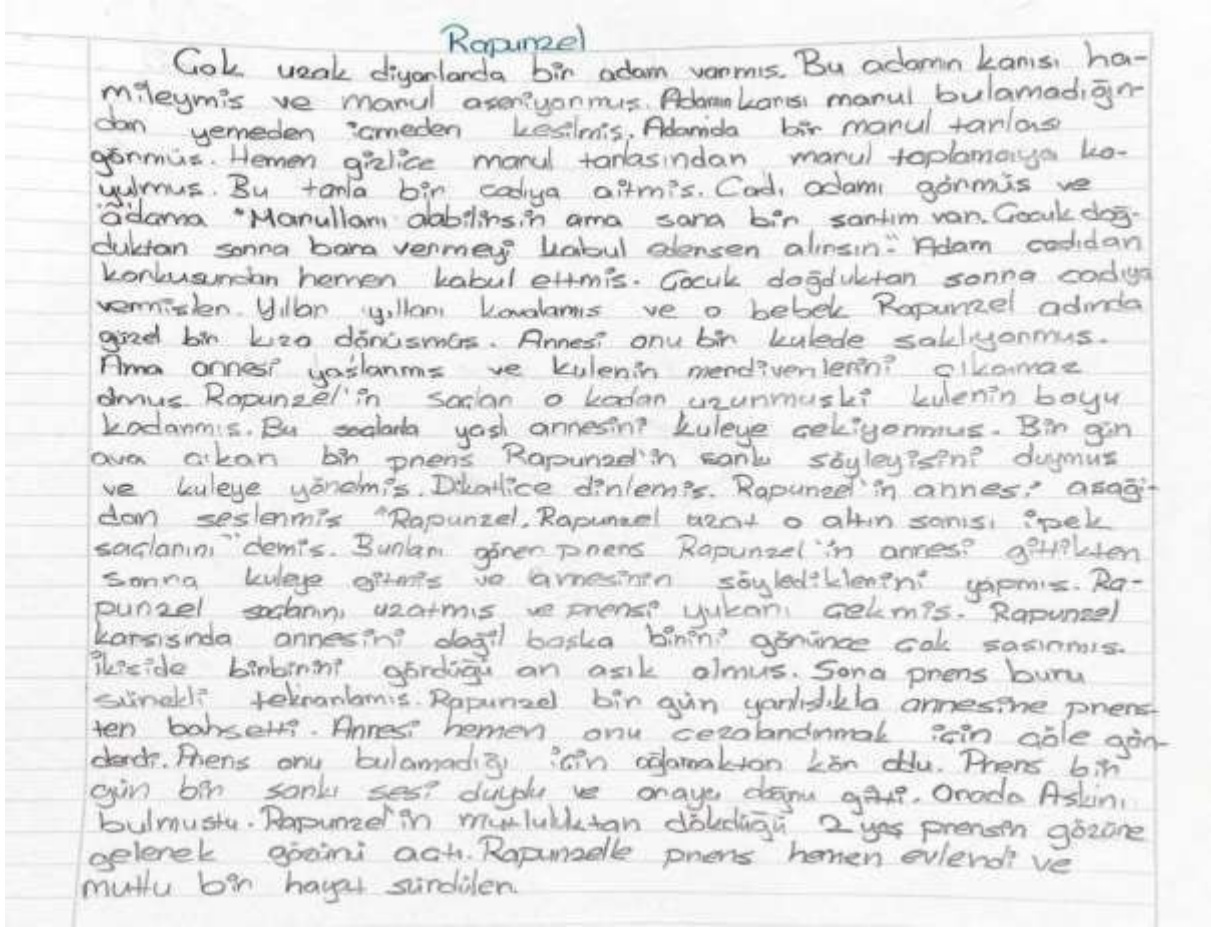 Rapunzel
Çok uzak diyarlarda bir adam varmış. Bu adamın karısı ha-
mileymiş ve marul aşeriyormuş. Adamın karısı marul bulamadığın-
dan yemeden içmeden kesilmiş. Adamda bir marul tarlası
görmüş. Hemen gizlice marul tarlasından marul toplamaya ko-
yulmuş. Bu tarla bir cadıya aitmiş. Cadı adamı görmüş ve
adama "Marulları alabilirsin ama sana bir şartım var. Çocuk doğ-
duktan sonra bana vermeyi kabul edersen alırsın." Adam cadıdan
korkusundan hemen kabul ettmiş. Çocuk doğduktan sonra cadıya
vermişler. Yıllar yılları kovalamış ve o bebek Rapunzel adında
güzel bir kıza dönüşmüş. Annesi onu bir kulede saklıyormuş.
Ama annesi yaşlanmış ve kulenin merdivenlerini çıkamaz
olmuş. Rapunzel'in saçları o kadar uzunmuşki kulenin boyu
kadarmış. Bu saçlarla yaşlı annesini kuleye çekiyormuş. Bir gün
ava çıkan bir prens Rapunzel'in şarkı söyleyişini duymuş
ve kuleye yönelmiş. Dikatlice dinlemiş. Rapunzel'in annesi aşağı-
dan seslenmiş "Rapunzel, Rapunzel uzat o altın sarısı ipek
saçlarını" demiş. Bunları gören prens Rapunzel'in annesi gittikten
sonra kuleye gitmiş ve annesinin söylediklerini yapmış. Ra-
punzel saçlarını uzatmış ve prensi yukarı çekmiş. Rapunzel
karşısında annesini değil başka birini görünce çok şaşırmış.
İkiside birbirini gördüğü an aşık olmuş. Sora prens bunu
sürekli tekrarlamış. Rapunzel bir gün yanlışlıkla annesine prens-
ten bahsetti. Annesi hemen onu cezalandırmak için çöle gön-
derdi. Prens onu bulamadığı için ağlamaktan kör oldu. Prens bir
gün bir şarkı sesi duydu ve oraya doğru gitti. Orada Aşkını
bulmuştu. Rapunzel'in mutluluktan dökdüğü 2 yaş prensin gözüne
gelerek gözünü açtı. Rapunzelle prens hemen evlendi ve
mutlu bir hayat sürdüler.